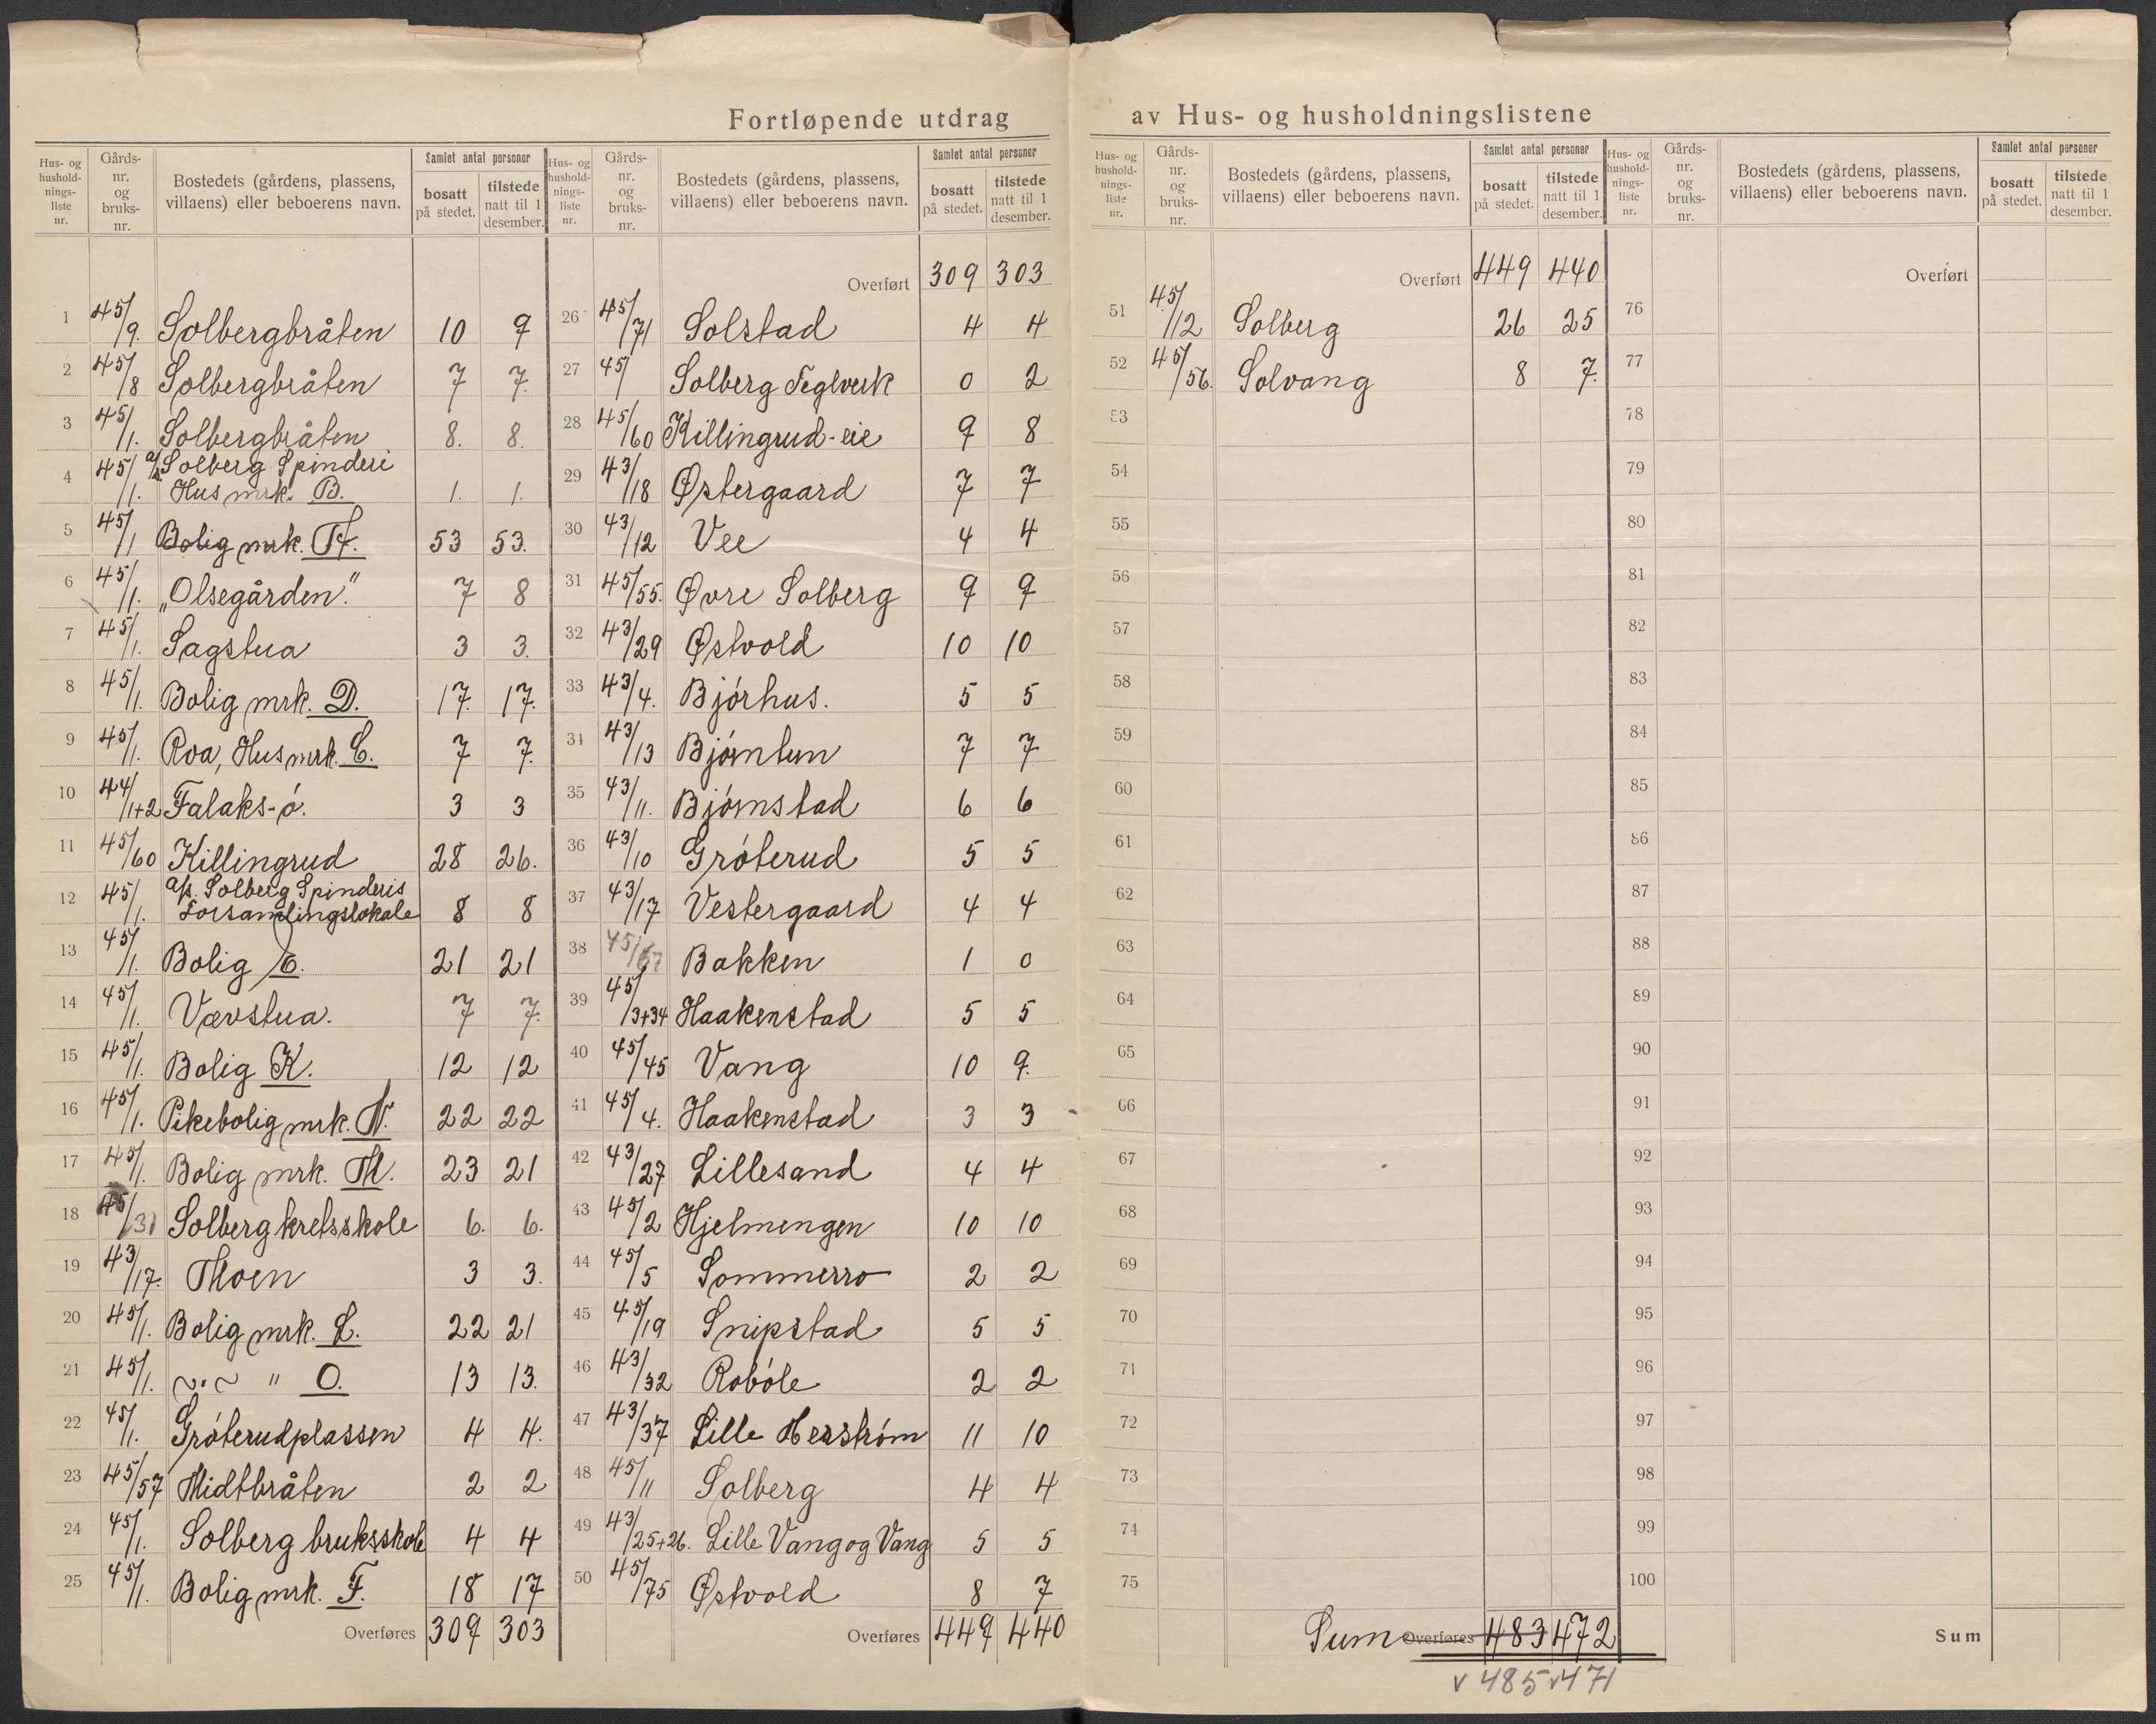 Fortløpende utdrag av Hus- og husholdningslistene
Hus- og husholdnings-liste nr. | Gårds-nr. og bruks-nr. | Bostedets (gårdens, plassens, villaens) eller beboerens navn. | Samlet antal personer | bosatt på stedet. | tilstede natt til 1 desember.
1 45/9. Solbergbråten 10 9
2 45/8 Solbergbråten 7 7.
3 45/1. Solbergbråten 8. 8.
4 45/1. a/s Solberg Spinderi
Hus mrk. B. 1. 1.
5 45/1 Bolig mrk. H. 53 53.
6 45/1. „Olsegården." 7 8
7 45/1. Sagstua 3 3.
8 45/1. Bolig mrk. D. 17. 17.
9 45/1. Roa, Hus mrk. C. 7 7.
10 44/1+2 Falaks-ó. 3 3
11 45/60 Killingrud 28 26.
12 45/1. a/s. Solberg Spinderis
Forsamlingslokale 8 8
13 45/1. Bolig 21 21
14 45/1. Vævstua. 7 7.
15 45/1. Bolig K. 12 12
16 45/1. Pikebolig mrk. N. 22 22
17 45/1. Bolig mrk. M. 23 21
18 45/31 Solberg kretsskole 6. 6.
19 43/17. Moen 3 3.
20 45/1. Bolig mrk. L. 22 21
21 45/1. ~"~ " O. 13 13.
22 45/1. Gróterudplassen 4 4.
23 45/57 Midtbråten 2 2
24 45/1. Solberg bruksskole 4 4
25 45/1. Bolig mrk. F. 18 17
Overføres 309 303
Hus- og husholdnings-liste nr. | Gårds-nr. og bruks-nr. | Bostedets (gårdens, plassens, villaens) eller beboerens navn. | Samlet antal personer | bosatt på stedet. | tilstede natt til 1 desember.
Overført 309 303
26 45/71 Solstad 4 4
27 45/ Solberg Teglverk 0 2
28 45/60 Killingrud-eie 9 8
29 43/18 Østergaard 7 7
30 43/12 Vee 4 4
31 45/55. Øvre Solberg 9 9
32 43/29 Østvold 10 10
33 43/4. Bjórhus. 5 5
34 43/13 Bjórntun 7 7
35 43/11. Bjórnstad 6 6
36 43/10 Gróterud 5 5
37 43/17 Vestergaard 4 4
38 45/67 Bakken 1 0
39 45/3+34 Haakenstad 5 5
40 45/45 Vang 10 9.
41 45/4. Haakenstad 3 3
42 43/27 Lillesand 4 4
43 45/2 Hjelmengen 10 10
44 45/5 Sommerro 2 2
45 45/19 Snipstad 5 5
46 43/32 Robóle 2 2
47 43/37 Lille Herstróm 11 10
48 45/11 Solberg 4 4
49 43/25+26. Lille Vang og Vang 5 5
50 45/75 Østvold 8 7
Overføres 449 440
Hus- og husholdnings-liste nr. | Gårds-nr. og bruks-nr. | Bostedets (gårdens, plassens, villaens) eller beboerens navn. | Samlet antal personer | bosatt på stedet. | tilstede natt til 1 desember.
Overført 449 440
51 45/12 Solberg 26 25
52 45/56. Solvang 8 7.
53
54
55
56
57
58
59
60
61
62
63
64
65
66
67
68
69
70
71
72
73
74
75
Sum Overføres 483 472
v 485 v 471
Hus- og husholdnings-liste nr. | Gårds-nr. og bruks-nr. | Bostedets (gårdens, plassens, villaens) eller beboerens navn. | Samlet antal personer | bosatt på stedet. | tilstede natt til 1 desember.
Overført
76
77
78
79
80
81
82
83
84
85
86
87
88
89
90
91
92
93
94
95
96
97
98
99
100
Sum